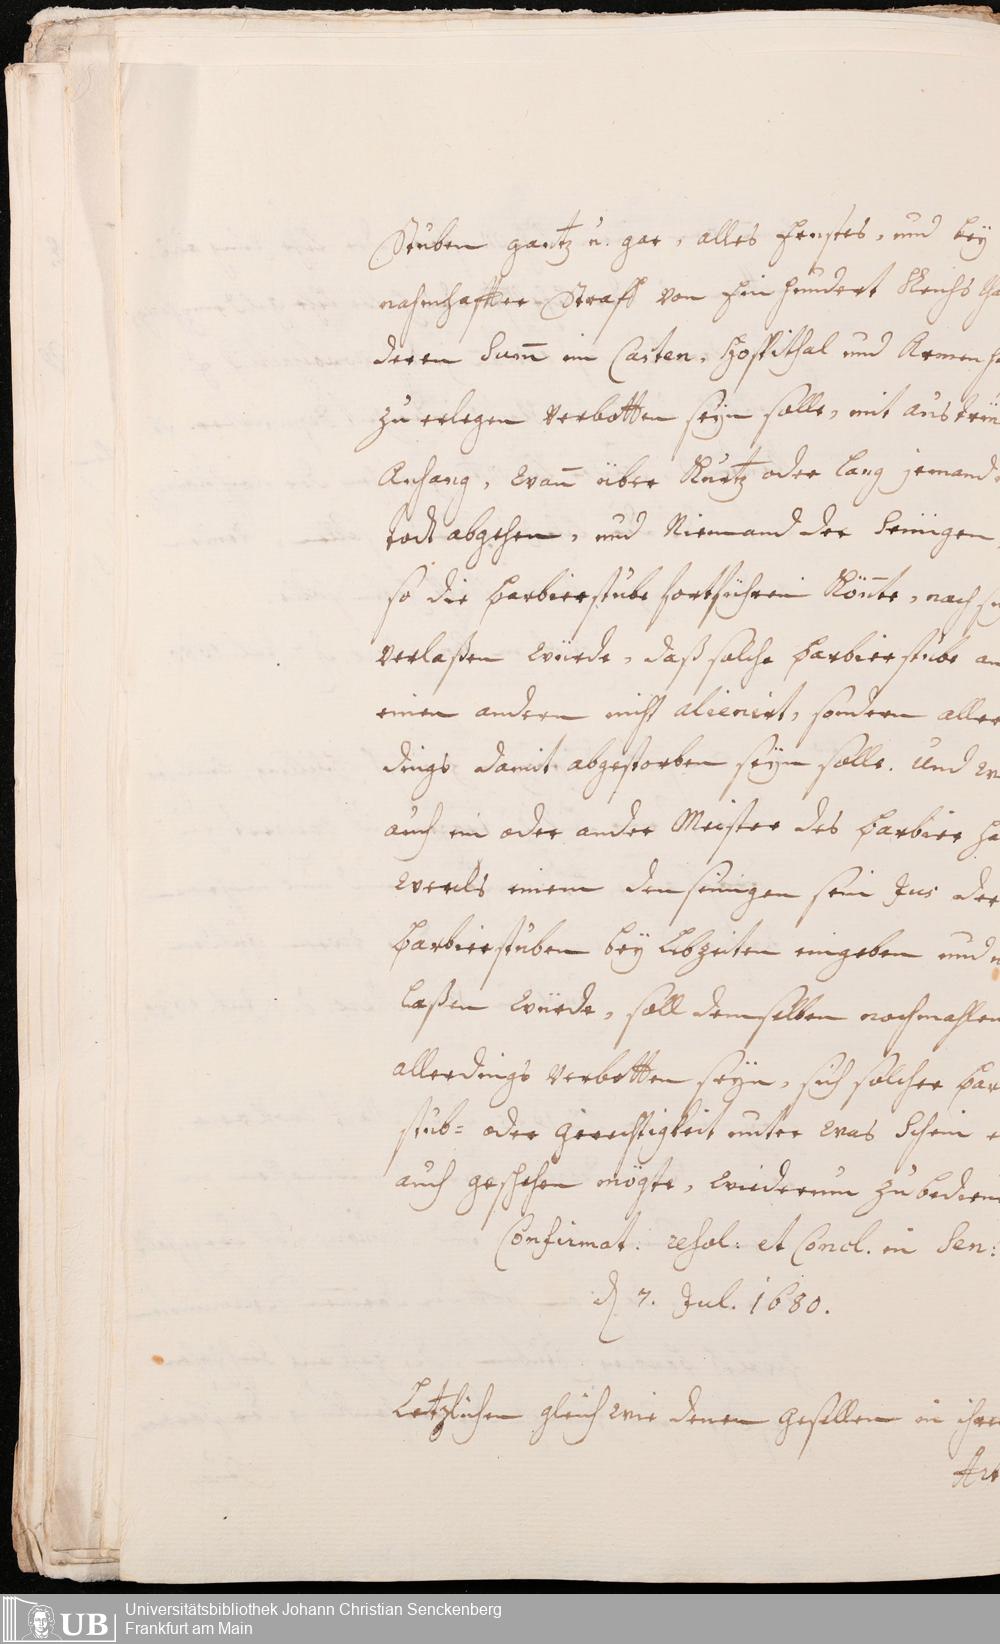 Stuben gantz u. gar, alles Ernstes, und beÿ
nahmhaffter Straff von Ein hundert Reichs tha
deren Sum̄ im Casten, Hospithal und Armen ha
zu erlegen verbotten seÿn solle, mit austrü
Anhang, wan̄ über Kurtz oder lang jemand
todt abgehen, und Niemand der Seinigen,
so die Barbierstube fortführen Kön̄te, nach s
verlaßen würde, daß solche Barbierstube an
einen andern nicht alienirt, sondern aller
dings damit abgestorben seÿn solle. Und w
auch ein oder ander Meister des Barbier ha
wercks einem dem seinigen sein Jus der
Barbierstuben beÿ Lebzeiten eingeben und
laßen würde, soll demselben nochmahlen
allerdings verbotten seÿn, sich solcher Bar
stub= oder Gerechtigkeit unter was Schein e
auch geschehen mögte, wiederum zu bedien
Confirmat: resol: et Concl. in Sen:
d 7. Jul. 1680.
Letzlichen gleich wie denen Gesellen in ihre
Art
Universitätsbibliothek Johann Christian Senckenberg
UB Frankfurt am Main